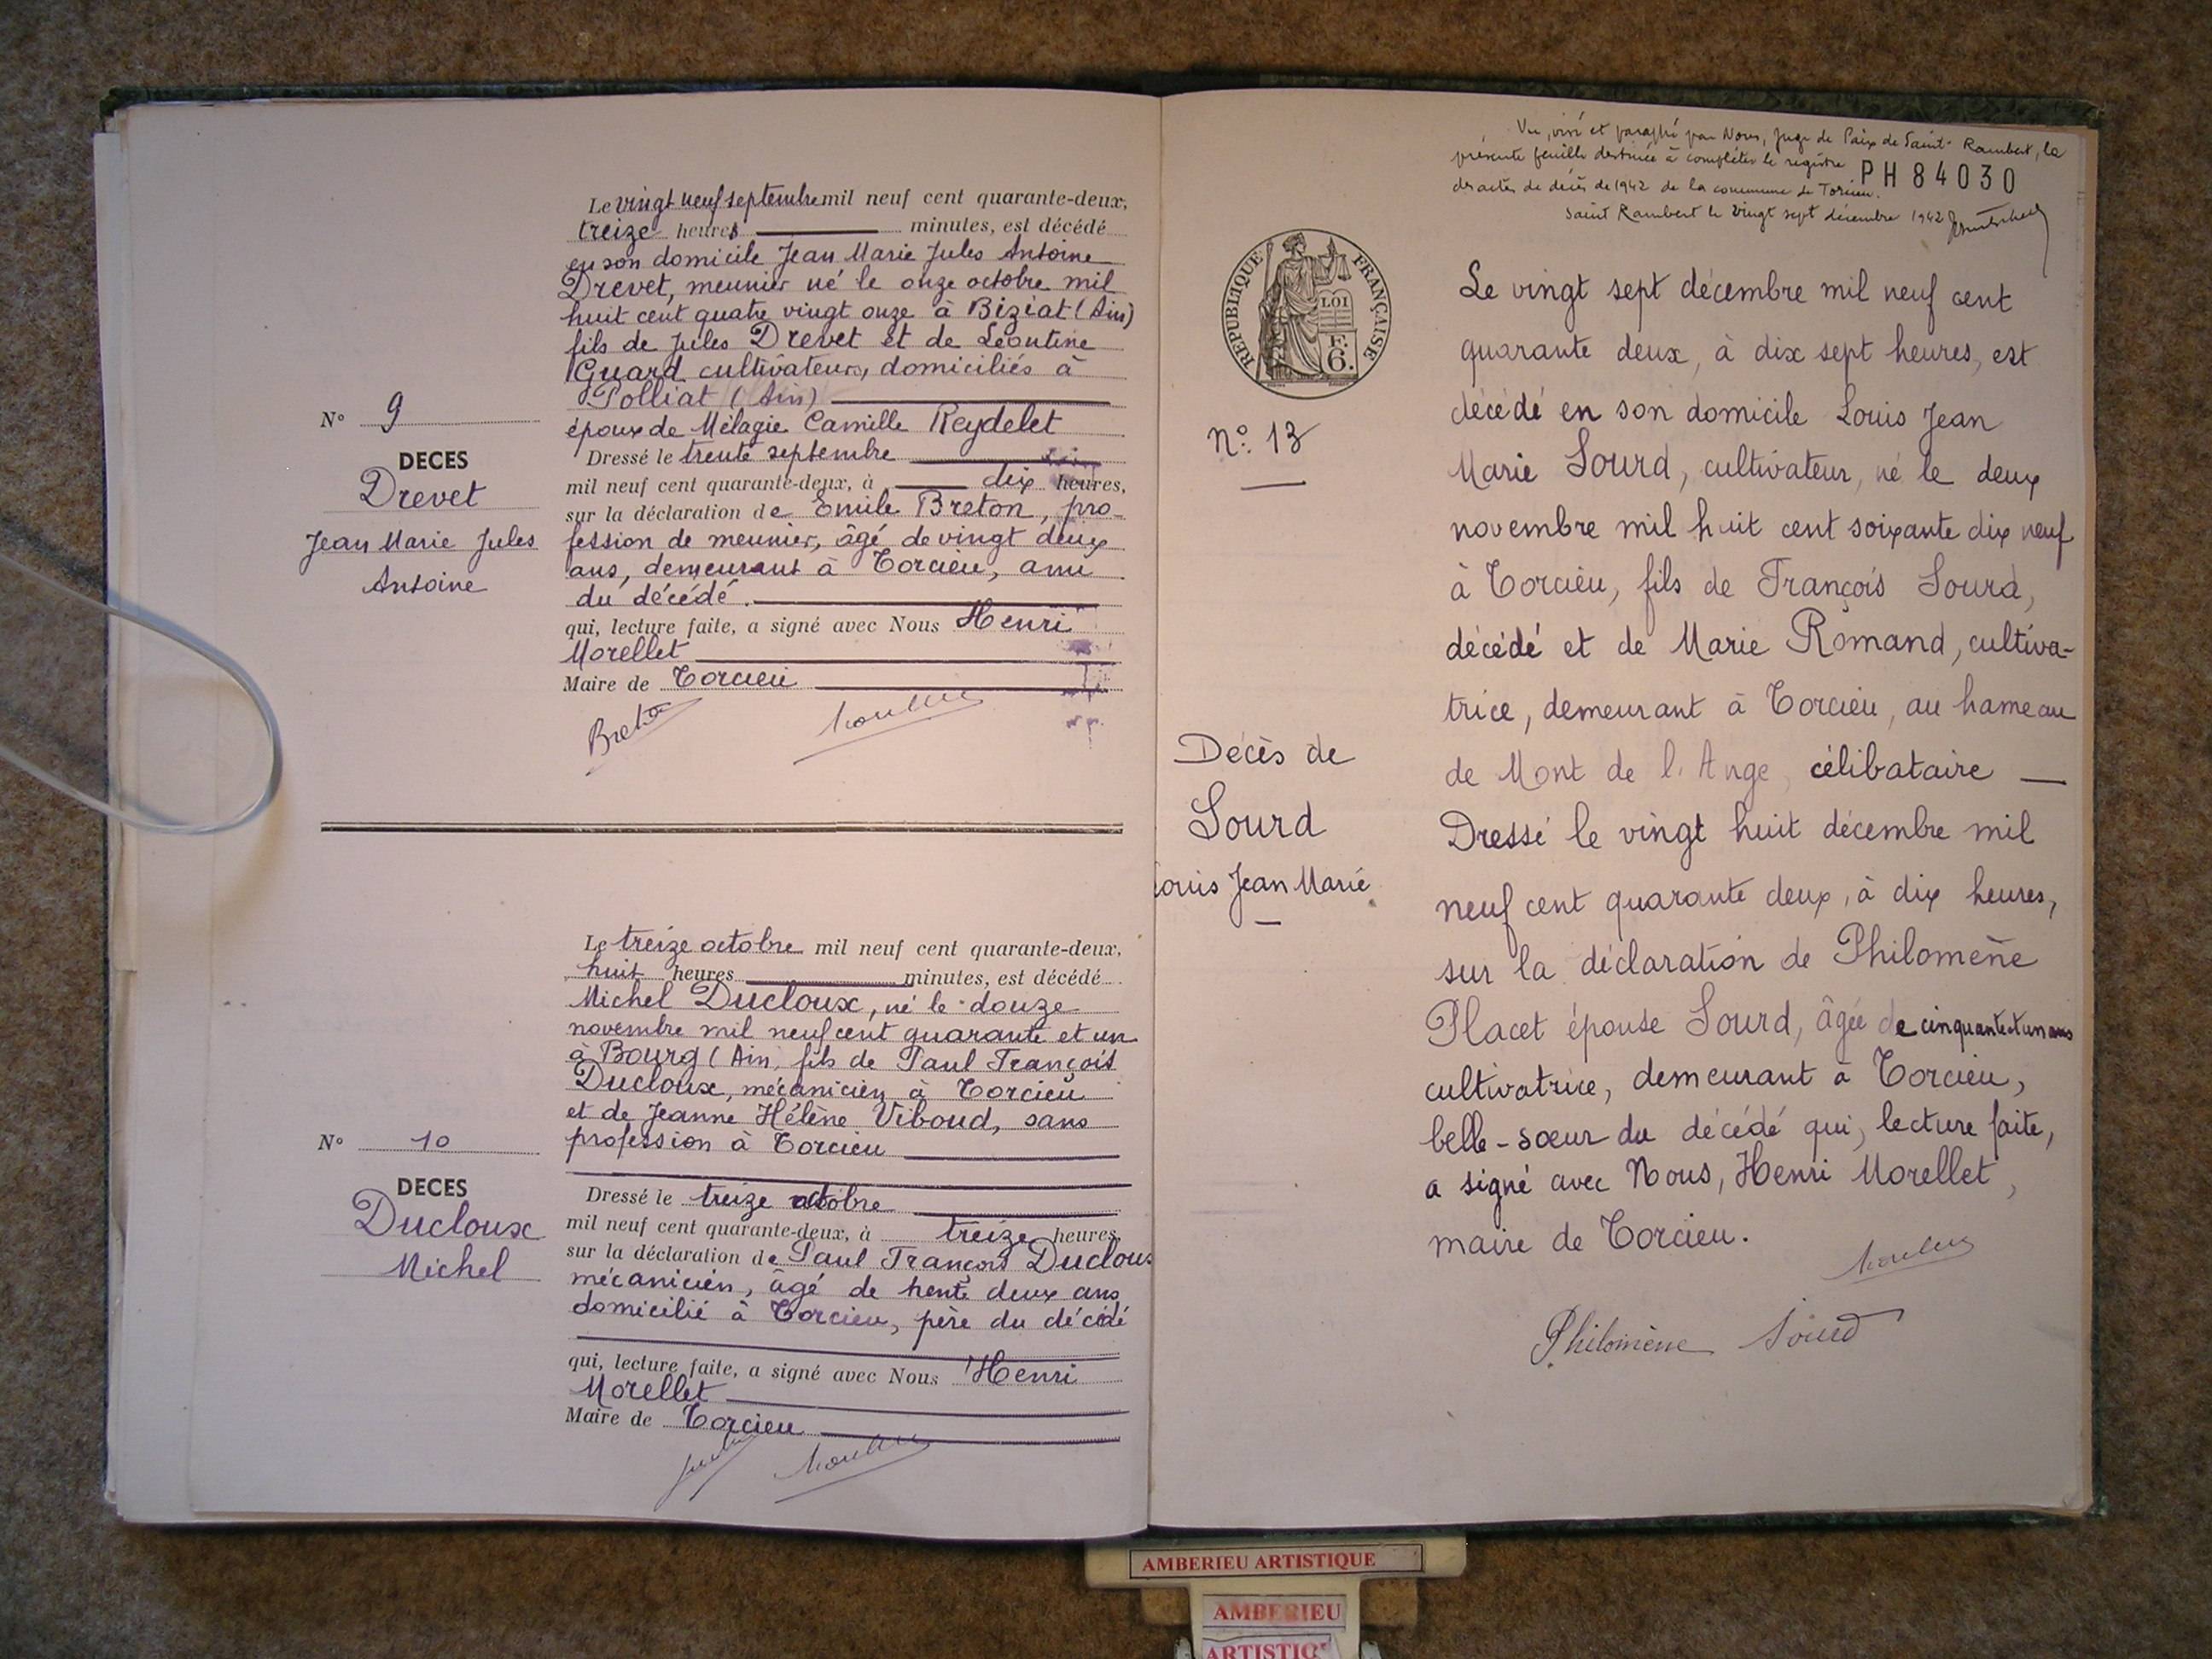 Le vingt neuf septembre mil neuf cent quarante-deux,
treize heures minutes, est décédé
en son domicile Jean Marie Jules Antoine
Drevet, meunier né le onze octobre mil
huit cent quatre vingt onze à Biziat (Ain)
fils de Jules Drevet et de Léontine
Guard cultivateurs, domiciliés à
Polliat (Ain)
époux de Mélagie Camille Reydelet
Dressé le trente septembre
mil neuf cent quarante-deux, à dix heures,
sur la déclaration de Emile Breton, pro-
fession de meunier, âgé de vingt deux
ans, demeurant à Torcieu, ami
du décédé.
qui, lecture faite, a signé avec Nous Henri
Morellet
Maire de Torcieu
Breton
N° 9
DECES
Drevet
Jean Marie Jules
Antoine
Le treize octobre mil neuf cent quarante-deux,
huit heures minutes, est décédé
Michel Ducloux, né le douze
novembre mil neuf cent quarante et un
à Bourg (Ain, fils de Paul François
Ducloux, mécanicien à Torcieu
et de Jeanne Hélène Viboud, sans
profession à Torcieu
Dressé le treize octobre
mil neuf cent quarante-deux, à treize heures,
sur la déclaration de Paul François Ducloux
mécanicien, âgé de trente deux ans
domicilié à Torcieu, père du décédé
qui, lecture faite, a signé avec Nous Henri
Morellet
Maire de Torcieu
N° 10
DECES
Ducloux
Michel
Vu, visé et paraphé par Nous, Juge de Paix de Saint-Rambert, la
présente feuille destinée à compléter le registre
des actes de décès de 1942 de la commune de Torcieu.
Saint Rambert le vingt sept décembre 1942
PH 84030
REPUBLIQUE FRANÇAISE
LOI
F.
6.
N°: 13
Décès de
Sourd
Louis Jean Marie
Le vingt sept décembre mil neuf cent
quarante deux, à dix sept heures, est
décédé en son domicile Louis Jean
Marie Sourd, cultivateur, né le deux
novembre mil huit cent soixante dix neuf
à Torcieu, fils de François Sourd,
décédé et de Marie Romand, cultiva-
trice, demeurant à Torcieu, au hameau
de Mont de l'Ange, célibataire —
Dressé le vingt huit décembre mil
neuf cent quarante deux, à dix heures,
sur la déclaration de Philomène
Placet épouse Sourd, âgée de cinquante et un ans
cultivatrice, demeurant à Torcieu,
belle-sœur du décédé qui, lecture faite,
a signé avec Nous, Henri Morellet,
maire de Torcieu.
Philomène Sourd
AMBERIEU ARTISTIQUE
AMBERIEU
ARTISTIQ